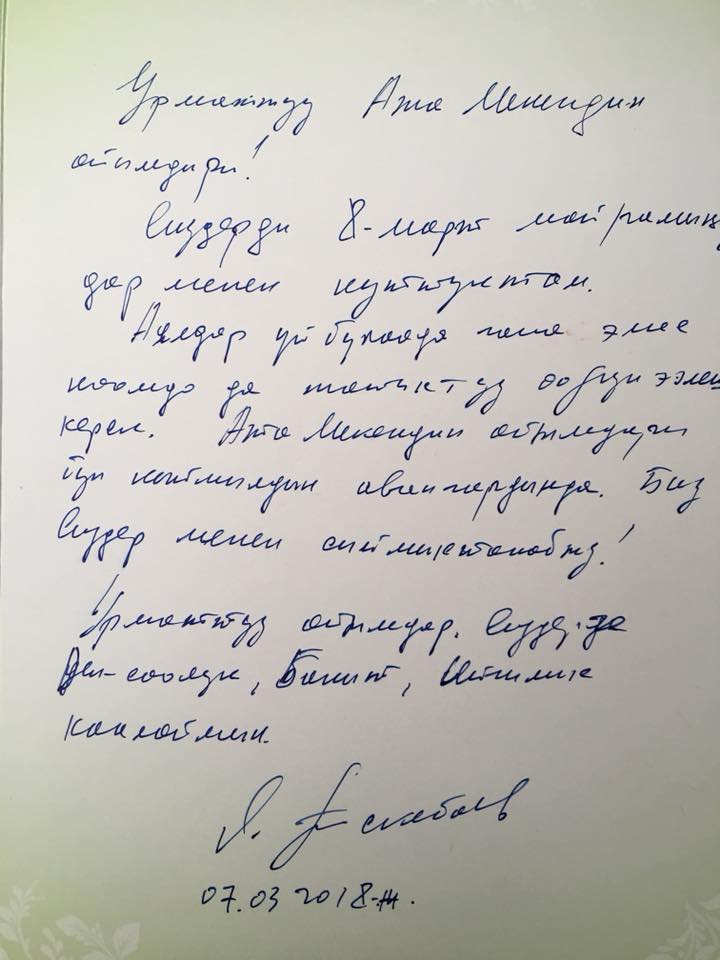 Урматтуу Ата Мекендин
айымдары!
Сиздерди 8-март майрамың
дар менен куттуктайм.
Аялдар үй бүлөөдө гана эмес
коомдо да татыктуу ээлеш
керек. Ата Мекендин айымдары
бул кыймылдын авангардында. Биз
Сиздер менен сыймыктанабыз!
Урматтуу айымдар. Сиздерге
Ден-соолук, Бакыт, Ийгилик
каалаймын.
07.03 2018-ж.